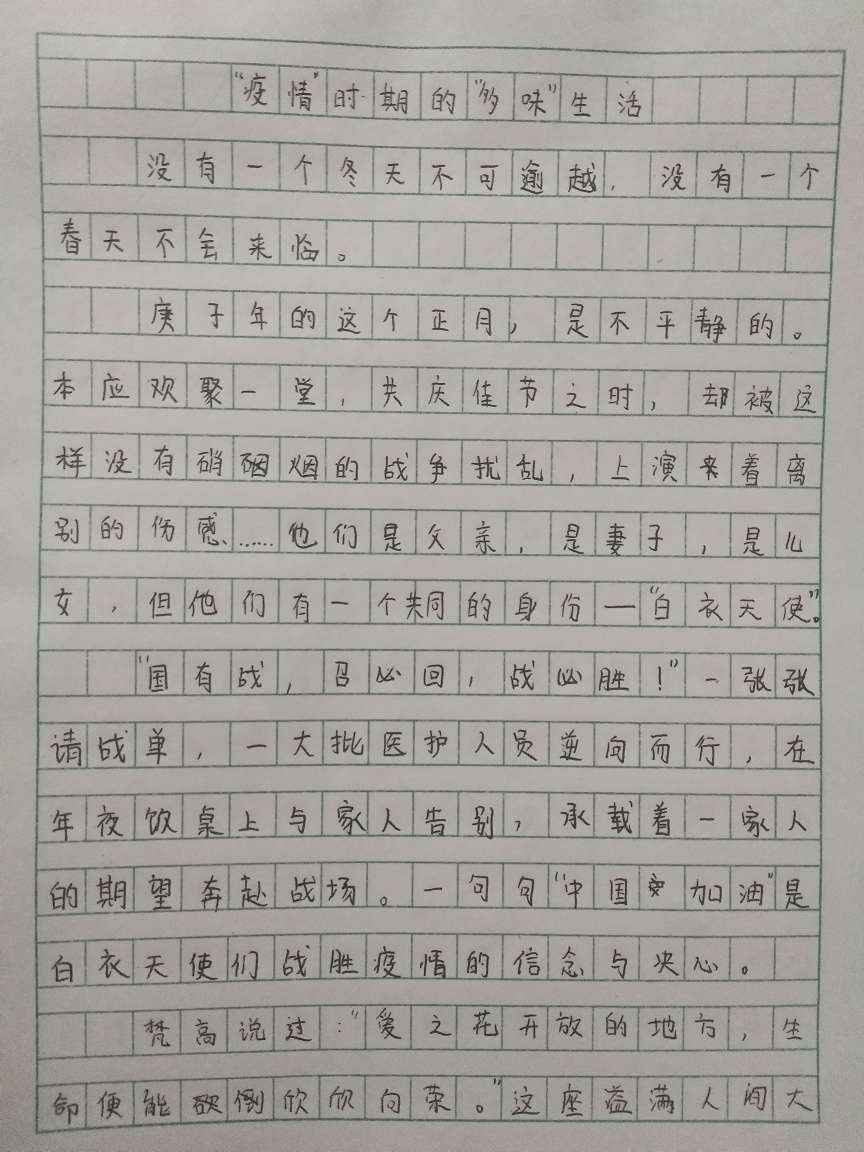 “疫情”时期的“多味”生活
没有一个冬天不可逾越，没有一个
春天不会来临。
庚子年的这个正月，是不平静的。
本应欢聚一堂，共庆佳节之时，却被这
样没有硝烟的战争扰乱，上演着离
别的伤感……他们是父亲，是妻子，是儿
女，但他们有一个共同的身份—“白衣天使”。
“国有战，召必回，战必胜！”一张张
请战单，一大批医护人员逆向而行，在
年夜饮桌上与家人告别，承载着一家人
的期望奔赴战场。一句句“中国加油”是
白衣天使们战胜疫情的信念与决心。
梵高说过：“爱之花开放的地方，生
命便能欣欣向荣。”这座溢满人间大